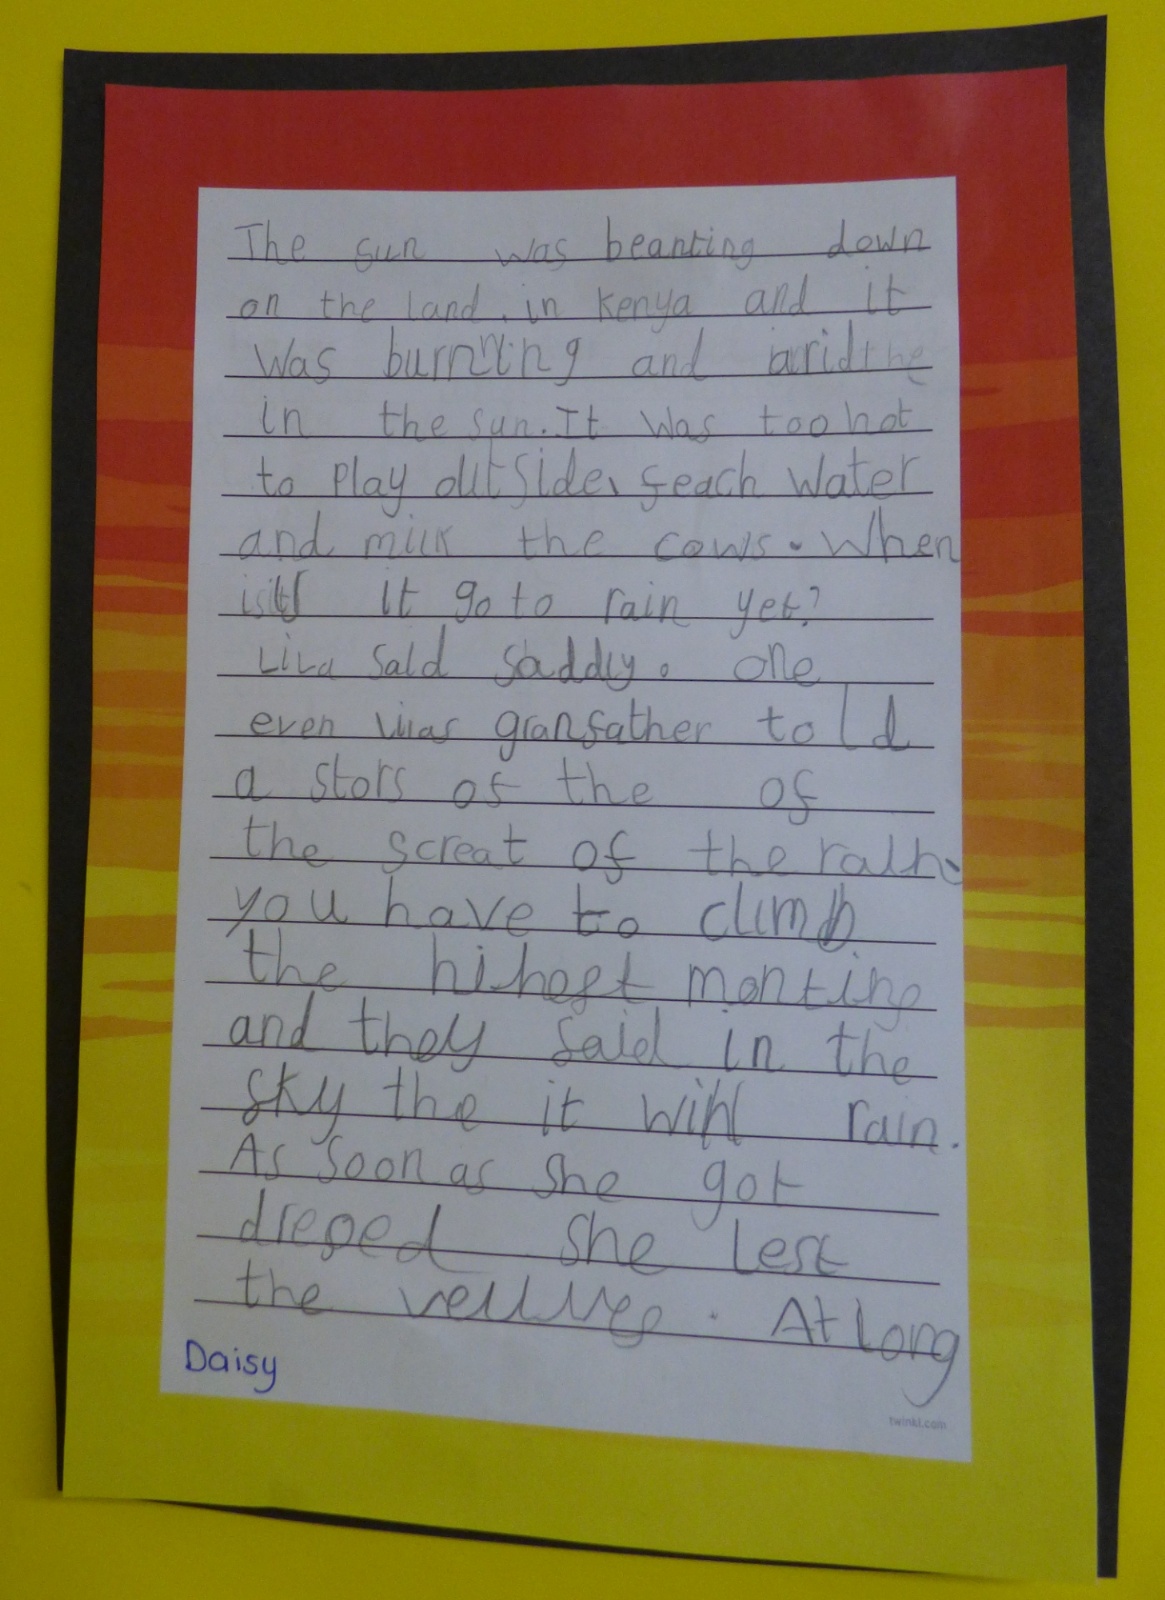 The sun was beanting down
on the land. in kenya and it
was burnning and arid the
in the sun. It was too hot
to play outside, feach water
and milk the cows. When
it go to rain yet?
Lila said saddly. one
even lilas granfather told
a stors of the of
the screat of the rain.
you have to climb
the hihest monting
and they said in the
sky the it will rain.
As soon as she got
dreped she left
the . At long
Daisy
twinkl.com